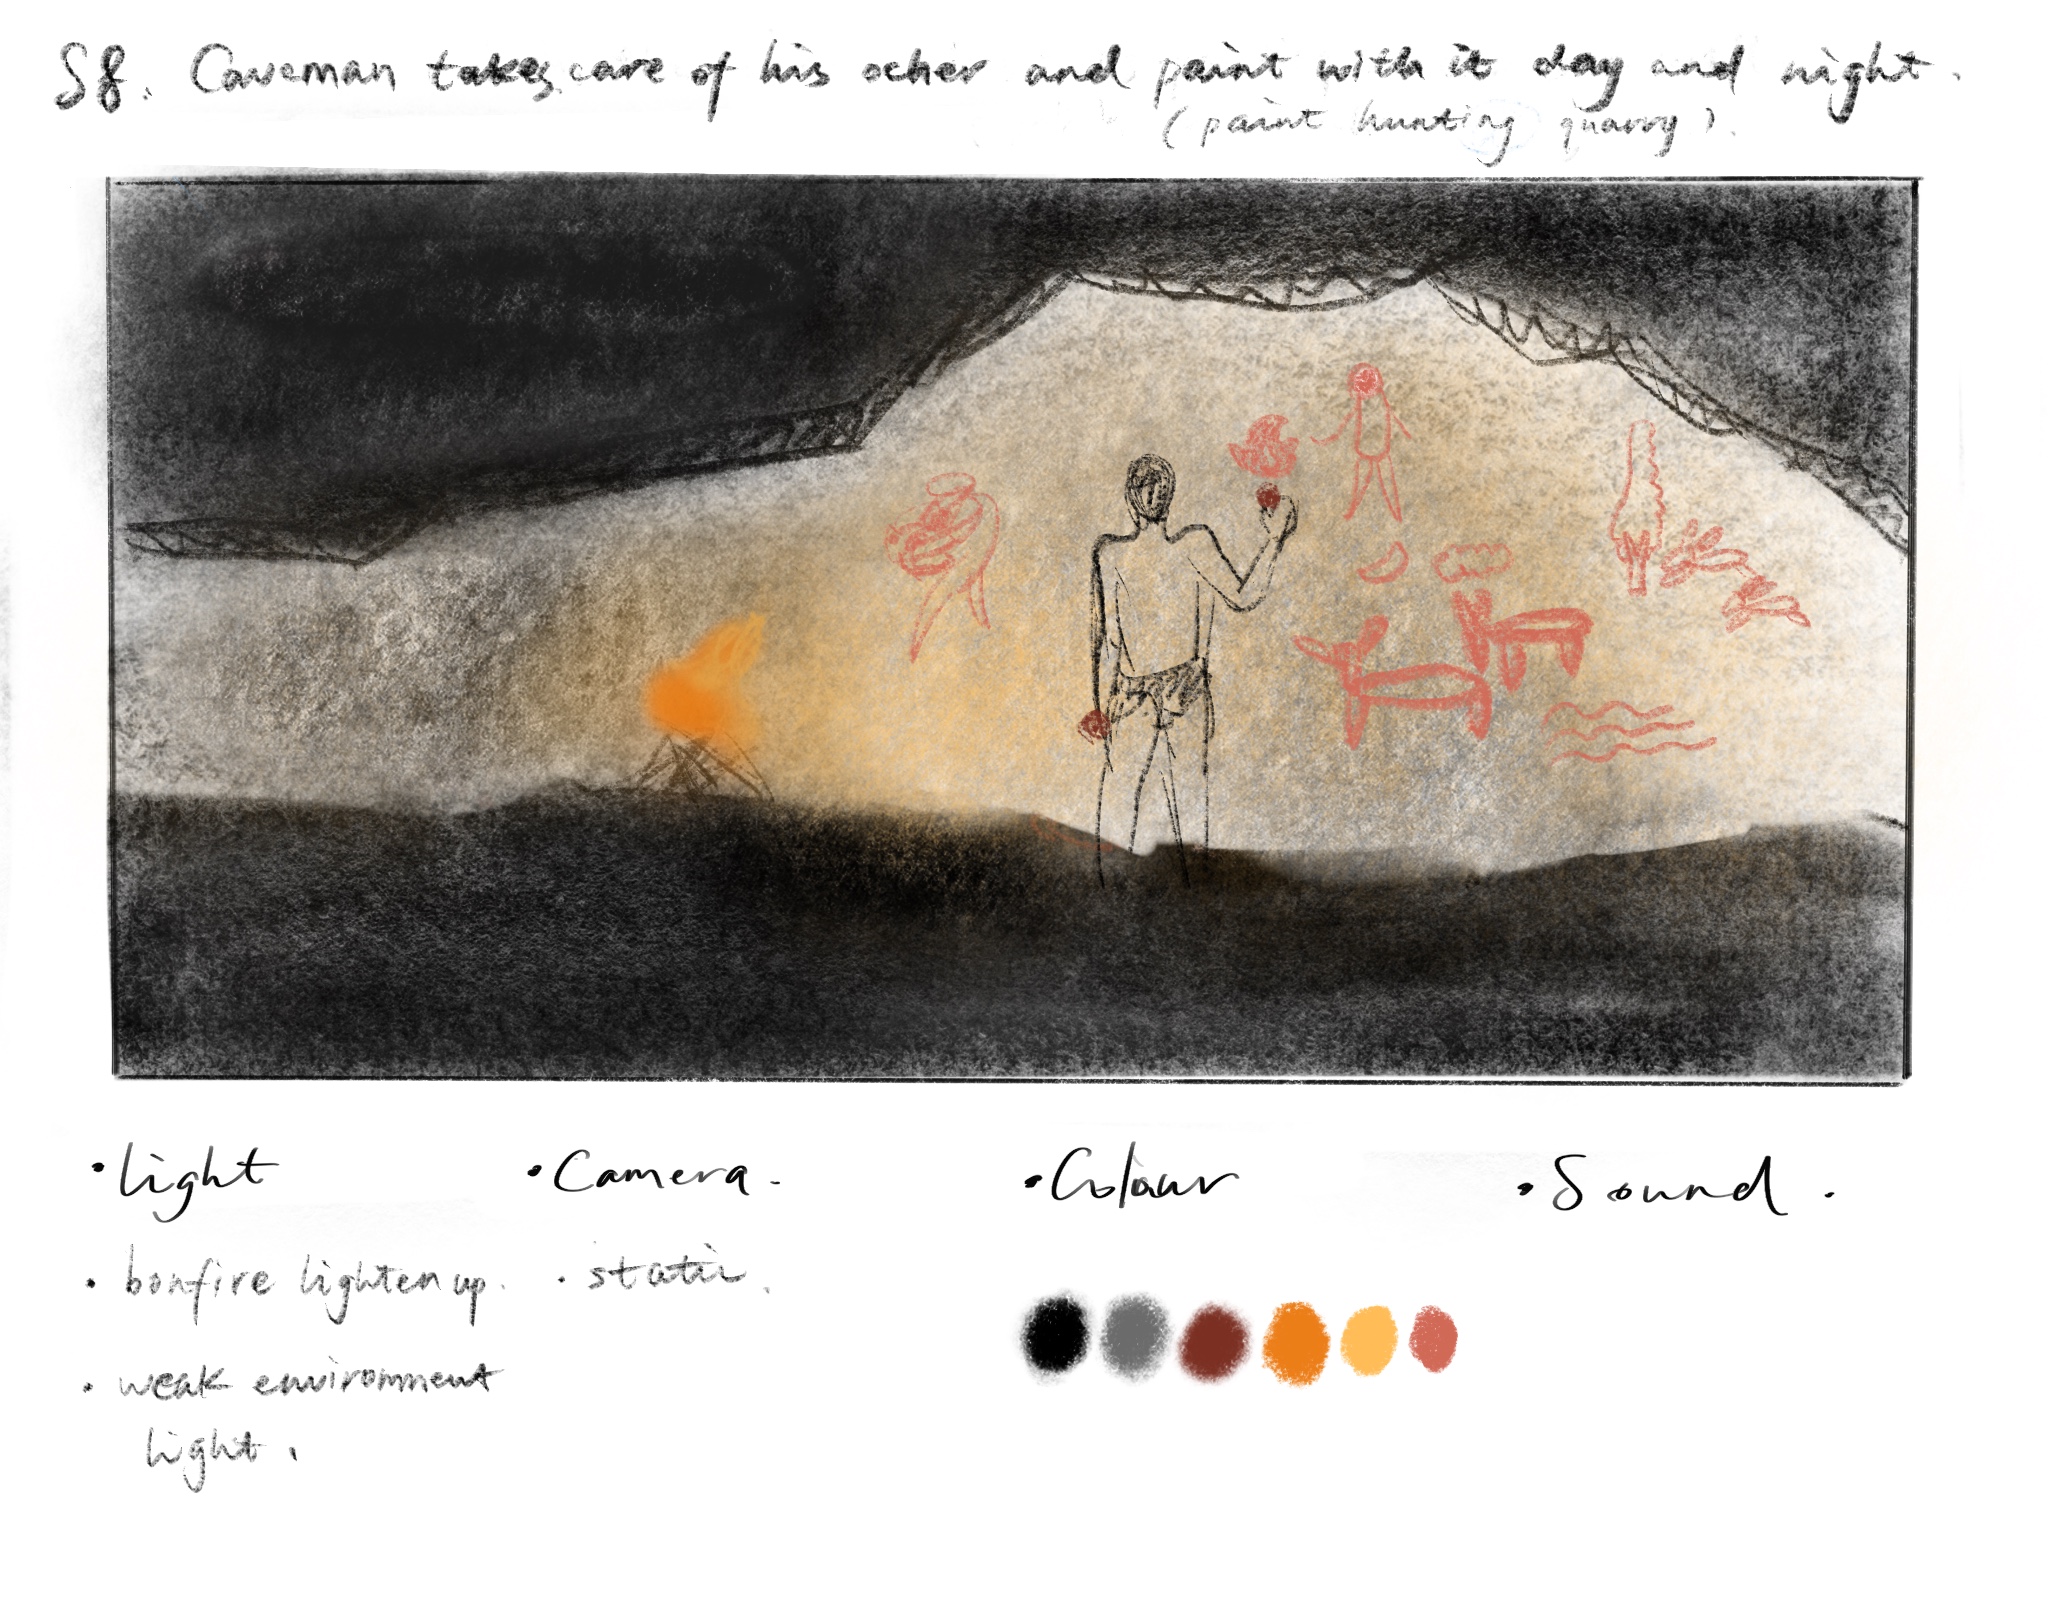 S8. Caveman takes care of his ocher and paint with it day and night.
(paint hunting quarry).
• light
• Camera.
• Colour
• Sound.
• bonfire lighten up.
• static.
• weak environment
light.